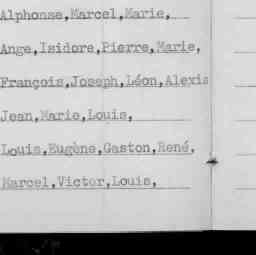 Alphonse,Marcel,Marie,
Ange,Isidore,Pierre,Marie,
François,Joseph,Léon,Alexis
Jean,Marie,Louis,
Louis,Eugène,Gaston,René,
Marcel,Victor,Louis,